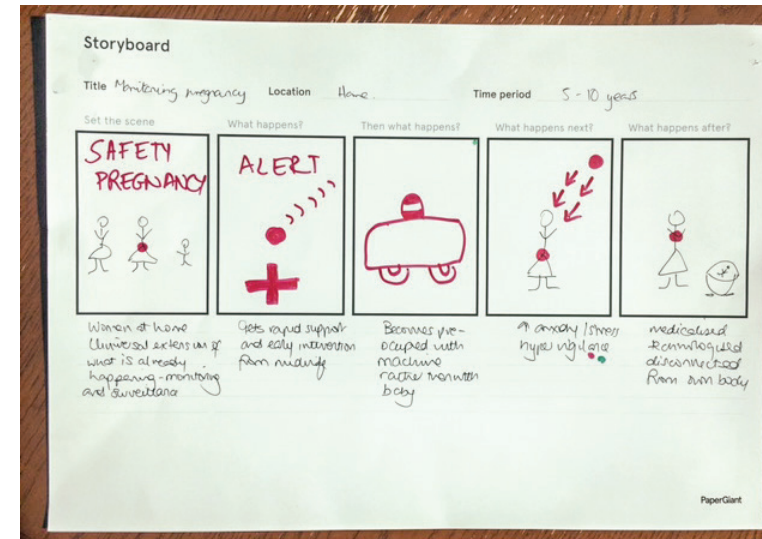 Storyboard
Title Monitoring pregnancy Location Home. Time period 5-10 years
Set the scene
SAFETY
PREGNANCY
Women at home
Universal extension of
what is already
happening - monitoring
and surveillance
What happens?
ALERT
Gets rapid support
and early intervention
from midwife
Then what happens?
Becomes pre-
ocupied with
machine
rather than with
baby
What happens next?
↑ anxiety / stress
hyper vigilance
What happens after?
medicalised
technologised
disconnected
from own body
PaperGiant